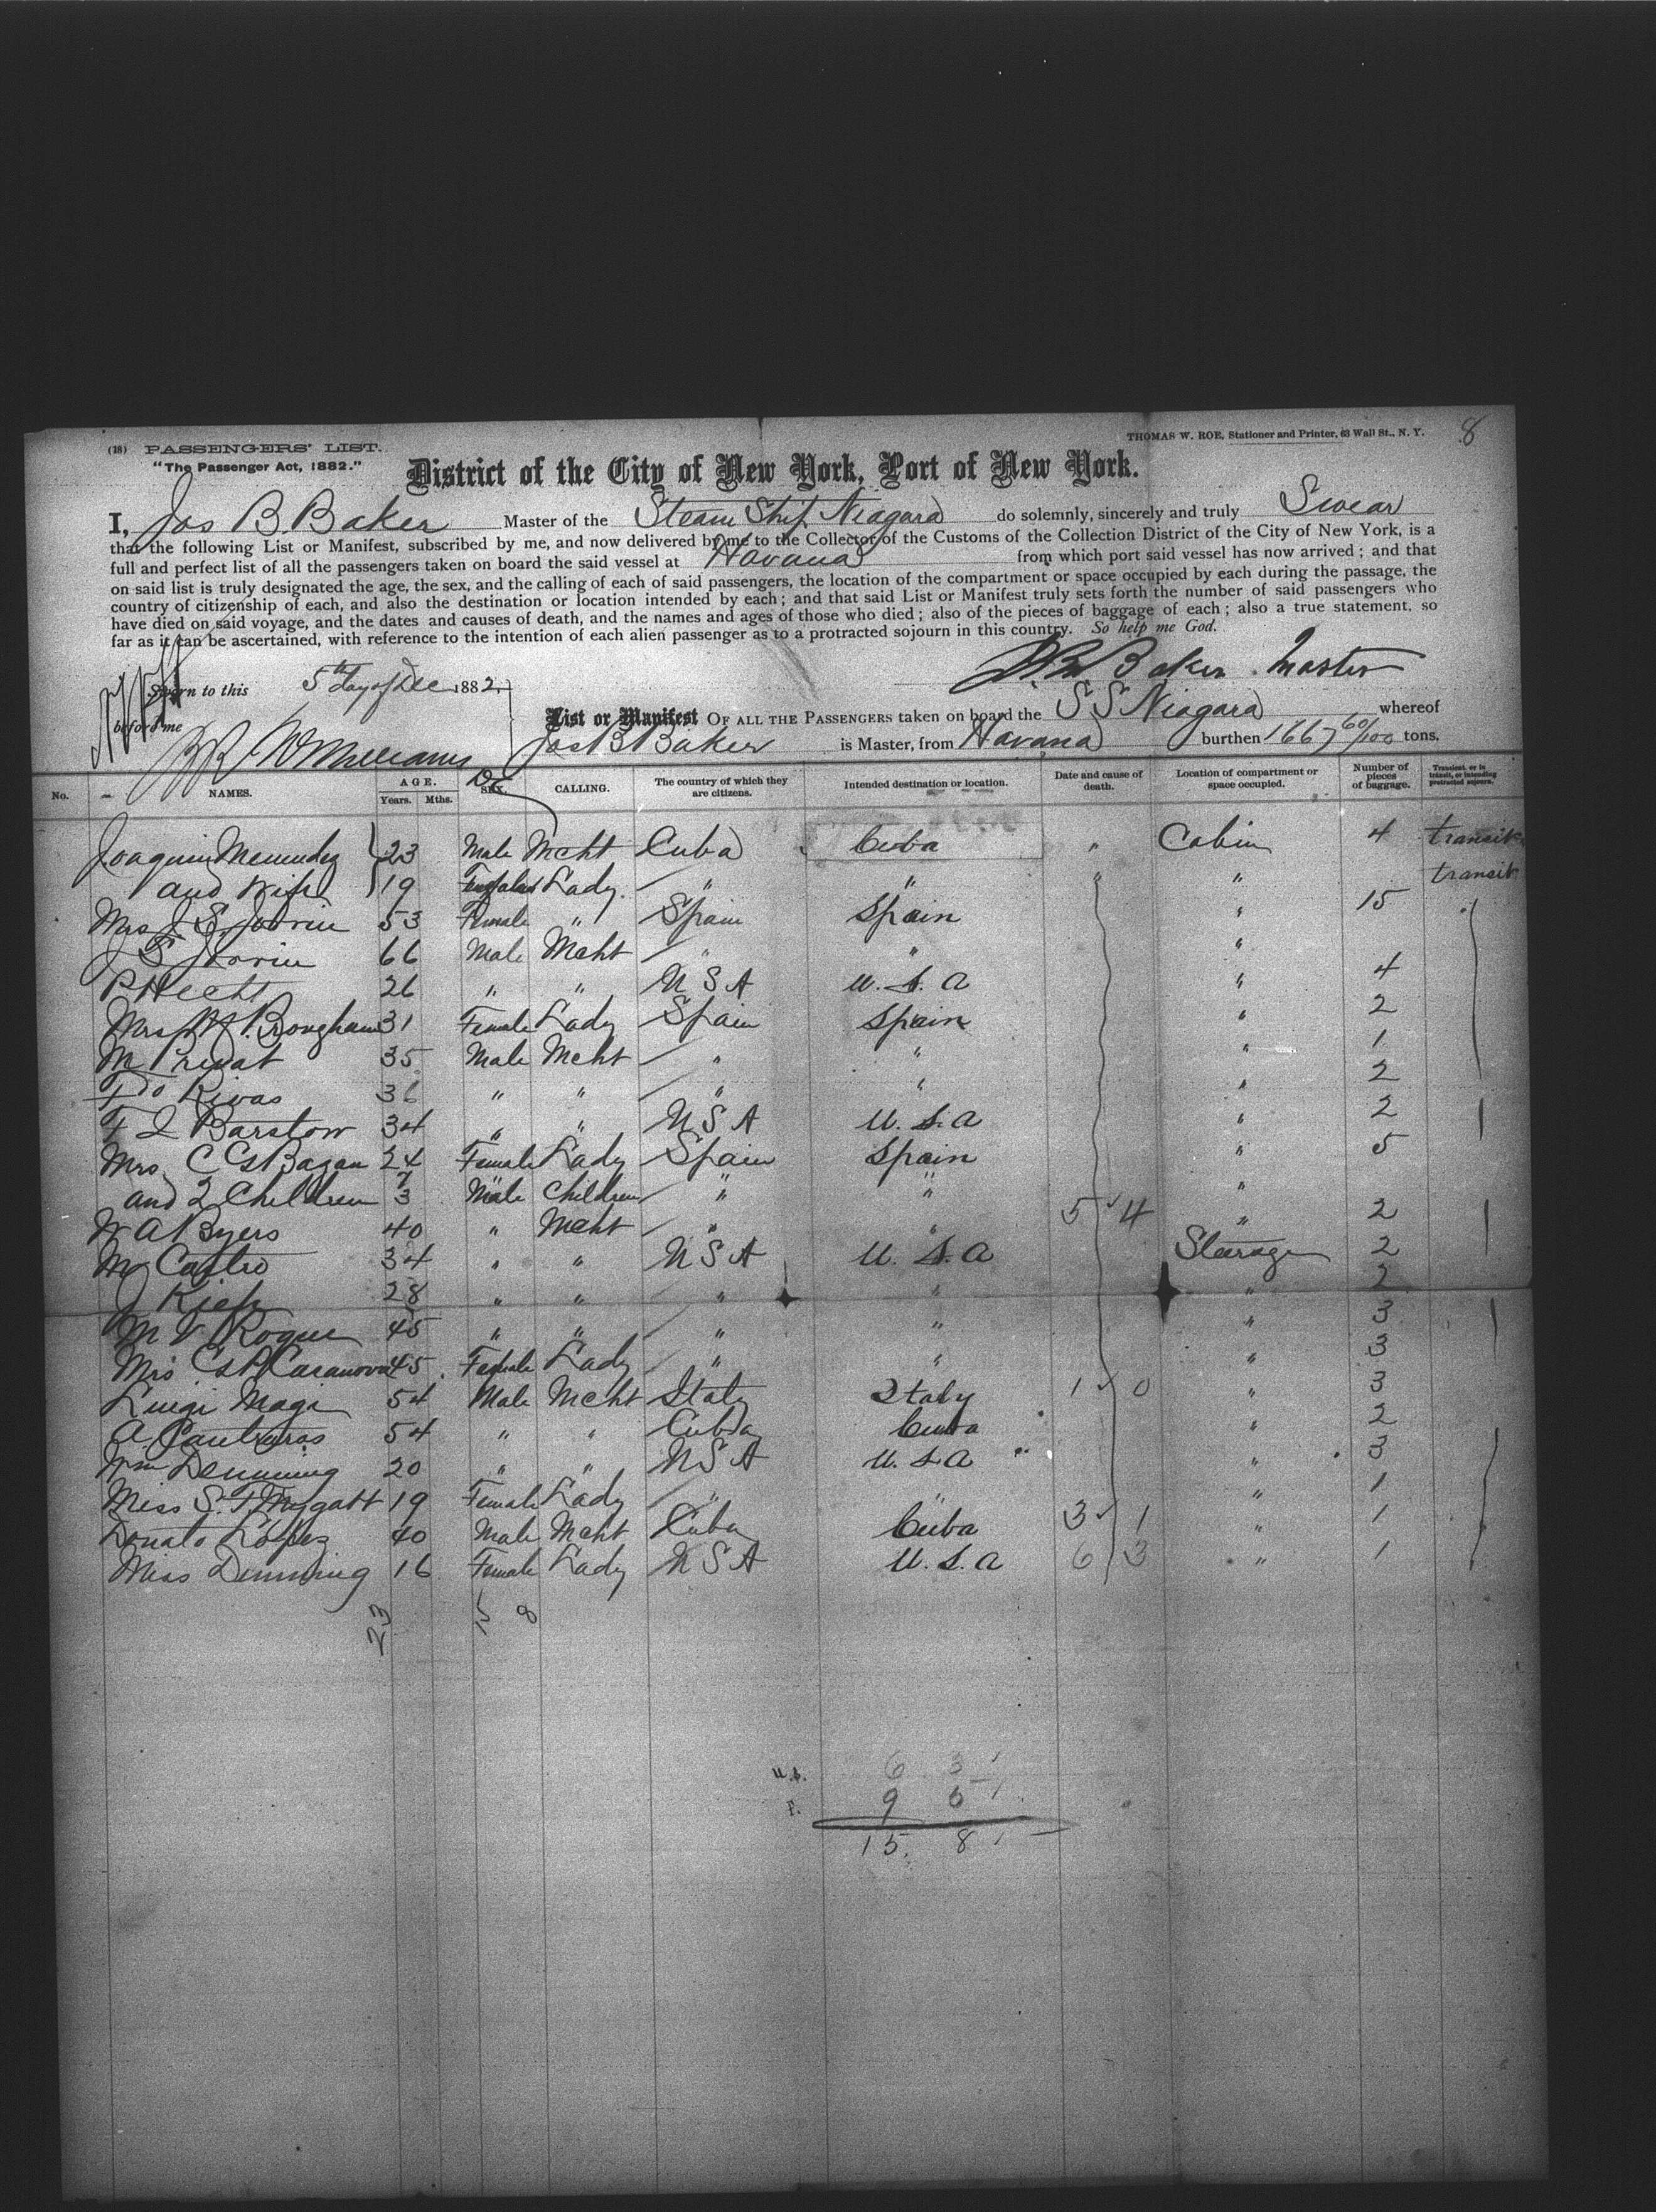 (18) PASSENGERS' LIST.
THOMAS W. ROE, Stationer and Printer, 63 Wall St., N. Y.
8
"The Passenger Act, 1882."
District of the City of New York, Port of New York.
I, Jas B. Baker Master of the Steam Ship Niagara do solemnly, sincerely and truly Swear
that the following List or Manifest, subscribed by me, and now delivered by me to the Collector of the Customs of the Collection District of the City of New York, is a
full and perfect list of all the passengers taken on board the said vessel at Havana from which port said vessel has now arrived; and that
on said list is truly designated the age, the sex, and the calling of each of said passengers, the location of the compartment or space occupied by each during the passage, the
country of citizenship of each, and also the destination or location intended by each; and that said List or Manifest truly sets forth the number of said passengers who
have died on said voyage, and the dates and causes of death, and the names and ages of those who died; also of the pieces of baggage of each; also a true statement, so
far as it can be ascertained, with reference to the intention of each alien passenger as to a protracted sojourn in this country. So help me God.
Baker Master
Sworn to this 5th day of Dec 1882.
before me
List or Manifest OF ALL THE PASSENGERS taken on board the S S Niagara whereof
Williams Jas B Baker is Master, from Havana burthen 1667 60/100 tons.
No. NAMES. AGE. Years. Mths. SEX. CALLING. The country of which they are citizens. Intended destination or location. Date and cause of death. Location of compartment or space occupied. Number of pieces of baggage. Transient, or in transit, or intending protracted sojourn.
Joaquin Menendez 23 Male Mcht Cuba Cuba " Cabin 4 transit
and wife 19 Lady " " " " transit
Mrs J E Jorrin 53 Female " Spain Spain " 15
J E Jorrin 66 Male Mcht " " "
P Hecht 26 " " U S A U. S. A " 4
Mrs Brougham 31 Female Lady Spain Spain " 2
M Privat 35 Male Mcht " " " 1
Fco Rivas 36 " " " " " 2
F L Barstow 34 " " U S A U. S. A " 2
Mrs C Bazan 24 Female Lady Spain Spain " 5
and 2 Children 7 3 Male Children " " "
W A Byers 40 " Mcht " " 5 4 " 2
M Castro 34 " " U S A U. S. A Steerage 2
J 28 " " " " " 2
M V Rogue 45 " " " " " 3
Mrs Casanova 45 Female Lady " " " 3
Luigi Magi 54 Male Mcht Italy Italy 1 0 " 3
A. 54 " " Cuba Cuba " 2
Wm Denning 20 " " U S A U. S. A " 3
Miss S. F. Mygatt 19 Female Lady " " " 1
Donato Lopez 40 Male Mcht Cuba Cuba 3 1 " 1
Miss Denning 16 Female Lady U S A U. S. A 6 3 " 1
23 8
U.S. 6 3
F. 9 5
15. 8